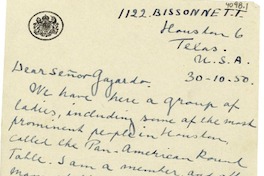 4098.1
1122. BISSONNETT.
Houston 6
Texas.
U.S.A.
30-10-50.
Dear Señor Gazardo.
We have here a group of
ladies, including some of the most
prominent people in Houston,
called the Pan-American Round
Table. I am a member and